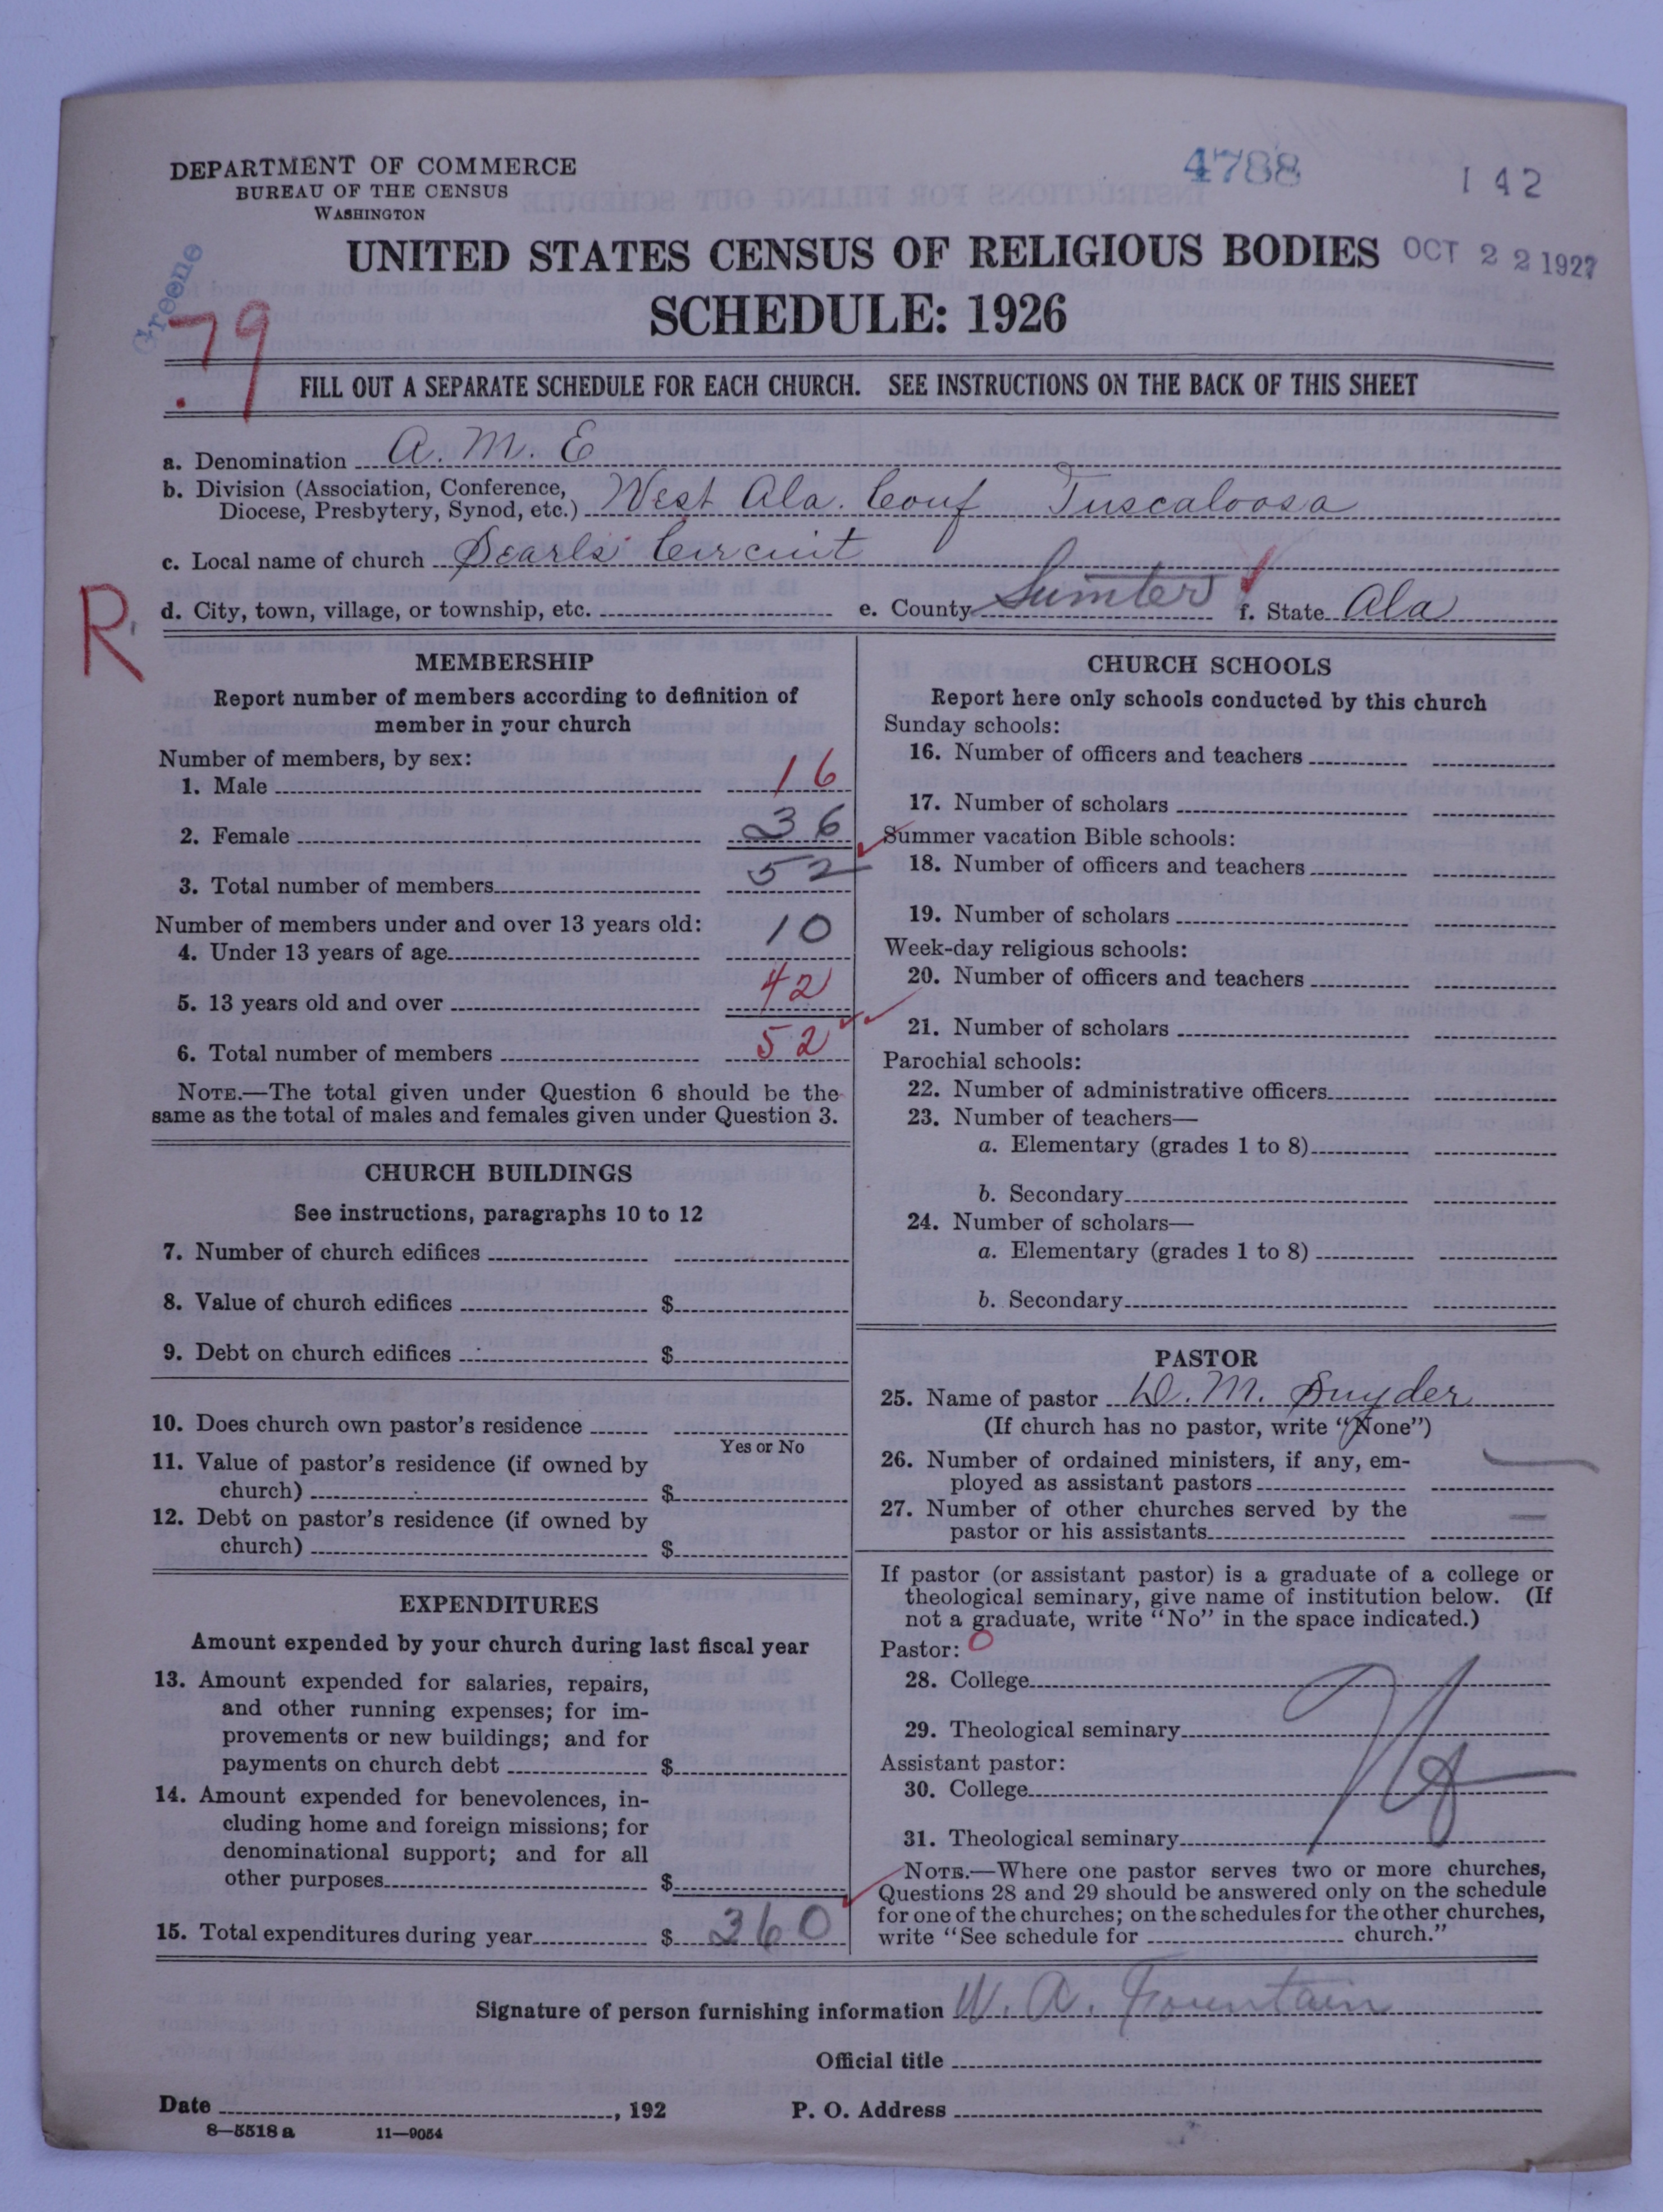 DEPARTMENT OF COMMERCE
BUREAU OF THE CENSUS
WASHINGTON
4788
142
UNITED STATES CENSUS OF RELIGIOUS BODIES
OCT 22 1927
SCHEDULE: 1926
Greene
79
FILL OUT A SEPARATE SCHEDULE FOR EACH CHURCH. SEE INSTRUCTIONS ON THE BACK OF THIS SHEET
a. Denomination A. M. E
b. Division (Association, Conference, Diocese, Presbytery, Synod, etc.) West Ala. Conf Tuscaloosa
c. Local name of church Searls Circuit
d. City, town, village, or township, etc. e. County Sumter f. State Ala
R
MEMBERSHIP
Report number of members according to definition of
member in your church
Number of members, by sex:
1. Male 16
2. Female 36
3. Total number of members 52
Number of members under and over 13 years old:
4. Under 13 years of age 10
5. 13 years old and over 42
6. Total number of members 52
NOTE.—The total given under Question 6 should be the
same as the total of males and females given under Question 3.
CHURCH BUILDINGS
See instructions, paragraphs 10 to 12
7. Number of church edifices
8. Value of church edifices $
9. Debt on church edifices $
10. Does church own pastor's residence
Yes or No
11. Value of pastor's residence (if owned by
church) $
12. Debt on pastor's residence (if owned by
church) $
EXPENDITURES
Amount expended by your church during last fiscal year
13. Amount expended for salaries, repairs,
and other running expenses; for im-
provements or new buildings; and for
payments on church debt $
14. Amount expended for benevolences, in-
cluding home and foreign missions; for
denominational support; and for all
other purposes $
15. Total expenditures during year $ 360
CHURCH SCHOOLS
Report here only schools conducted by this church
Sunday schools:
16. Number of officers and teachers
17. Number of scholars
Summer vacation Bible schools:
18. Number of officers and teachers
19. Number of scholars
Week-day religious schools:
20. Number of officers and teachers
21. Number of scholars
Parochial schools:
22. Number of administrative officers
23. Number of teachers—
a. Elementary (grades 1 to 8)
b. Secondary
24. Number of scholars—
a. Elementary (grades 1 to 8)
b. Secondary
PASTOR
25. Name of pastor D. M. Snyder
(If church has no pastor, write "None")
26. Number of ordained ministers, if any, em-
ployed as assistant pastors
27. Number of other churches served by the
pastor or his assistants
If pastor (or assistant pastor) is a graduate of a college or
theological seminary, give name of institution below. (If
not a graduate, write "No" in the space indicated.)
Pastor: 0
28. College
29. Theological seminary
Assistant pastor:
30. College
31. Theological seminary
NOTE.—Where one pastor serves two or more churches,
Questions 28 and 29 should be answered only on the schedule
for one of the churches; on the schedules for the other churches,
write "See schedule for church."
Signature of person furnishing information W. A. Fountain
Official title
Date , 192 P. O. Address
8—5518 a 11—9054